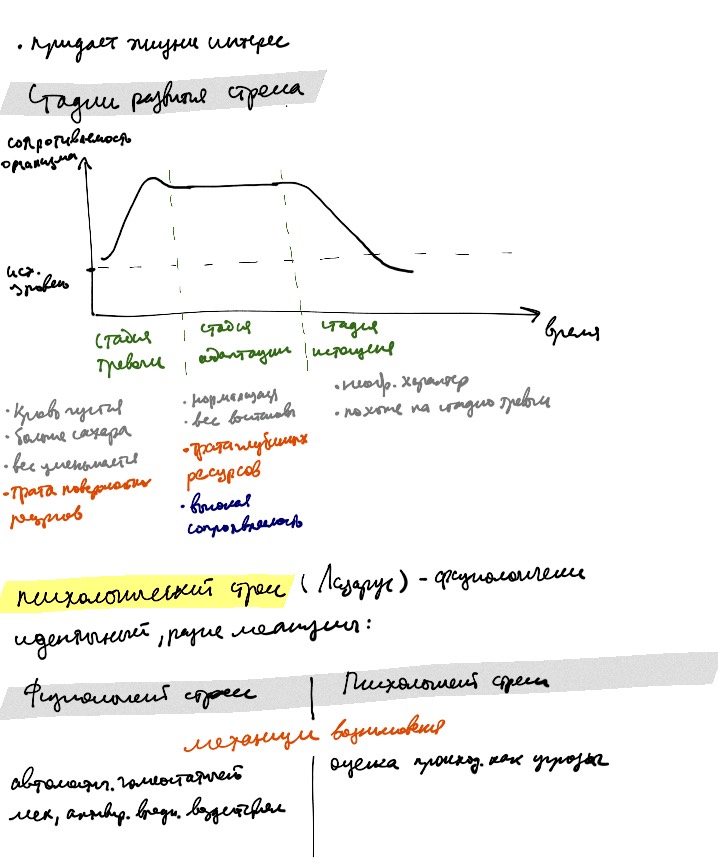 • придает жизни интерес
Стадии развития стресса
сопротивляемость
организма
исх.
уровень
время
стадия
тревоги
стадия
адаптации
стадия
истощения
• Кровь густая
• больше сахара
• вес уменьшается
• трата поверхностн
ресурсов
• нормализац
• вес восстанов
• трата глубинных
ресурсов
• высокая
сопротивляемость
• необр. характер
• похоже на стадию тревоги
психологический стресс (Лазарус) - физиологически
идентичный, разные механизмы:
Физиологический стресс
Психологический стресс
механизм возникновения
автоматич. гомеостатический
мех, активир. вредн. воздействием
оценка происход. как угрозы